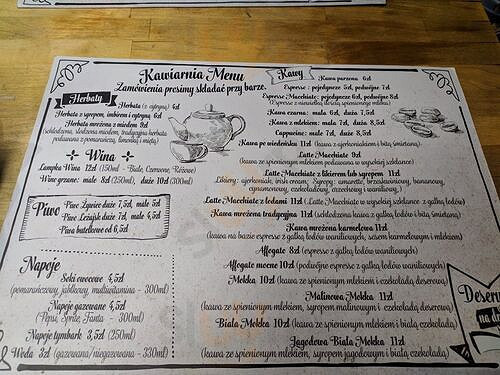 Kawiarnia Menu
Zamówienia prosimy składać przy barze.
Herbaty
Herbata (z cytryną) 4zł
Herbata z syropem, imbirem i cytryną 6zł
Herbata mrożona z miodem 8zł
(schłodzona, słodzona miodem, tradycyjna herbata
podawana z pomarańczą, limonką i miętą)
Wina
Lampka Wina 12zł (150ml - Białe, Czerwone, Różowe)
Wino grzane: małe 8zł (250ml), duże 10zł (300ml)
Piwo
Piwo Żywiec duże 7,5zł, małe 5zł
Piwo Leżajsk duże 7zł, małe 4,5zł
Piwa butelkowe od 6,5zł
Napoje
Soki owocowe 4,5zł
(pomarańczowy, jabłkowy, multiwitamina - 300ml)
Napoje gazowane 4,5zł
(Pepsi, Sprite, Fanta - 300ml)
Napoje tymbark 3,5zł (250ml)
Woda 3zł (gazowana/niegazowana - 330ml)
Kawy
Kawa parzona 6zł
Espresso: pojedyncze 5zł, podwójne 7zł
Espresso Macchiato: pojedyncze 6zł, podwójne 8zł
(Espresso z niewielką ilością spienionego mleka)
Kawa czarna: mała 6zł, duża 7,5zł
Kawa z mlekiem: mała 7zł, duża 8,5zł
Cappucino: małe 7zł, duże 8,5zł
Kawa po wiedeńsku 11zł (kawa z ajerkoniakiem i bitą śmietaną)
Latte Macchiato 9zł
(kawa ze spienionym mlekiem podawana w wysokiej szklance)
Latte Macchiato z likierem lub syropem 11zł
(Likiery: ajerkoniak, irish cream, Syropy: amaretto, brzoskwiniowy, bananowy,
cynamonowy, czekoladowy, orzechowy i waniliowy)
Latte Macchiato z lodami 11zł (Latte Macchiato w wysokiej szklance z gałką lodów)
Kawa mrożona tradycyjna 11zł (schłodzona kawa z gałką lodów i bitą śmietaną)
Kawa mrożona karmelowa 11zł
(kawa na bazie espresso z gałką lodów waniliowych, sosem karmelowym i mlekiem)
Affogato 8zł (espresso z gałką lodów waniliowych)
Affogato mocne 10zł (podwójne espresso z gałką lodów waniliowych)
Mokka 10zł (kawa ze spienionym mlekiem i czekoladą deserową)
Malinowa Mokka 11zł
(kawa ze spienionym mlekiem, syropem malinowym i czekoladą deserową)
Biała Mokka 10zł (kawa ze spienionym mlekiem i białą czekoladą)
Jagodowa Biała Mokka 11zł
(kawa ze spienionym mlekiem, syropem jagodowym i białą czekoladą)
Desery
na dr